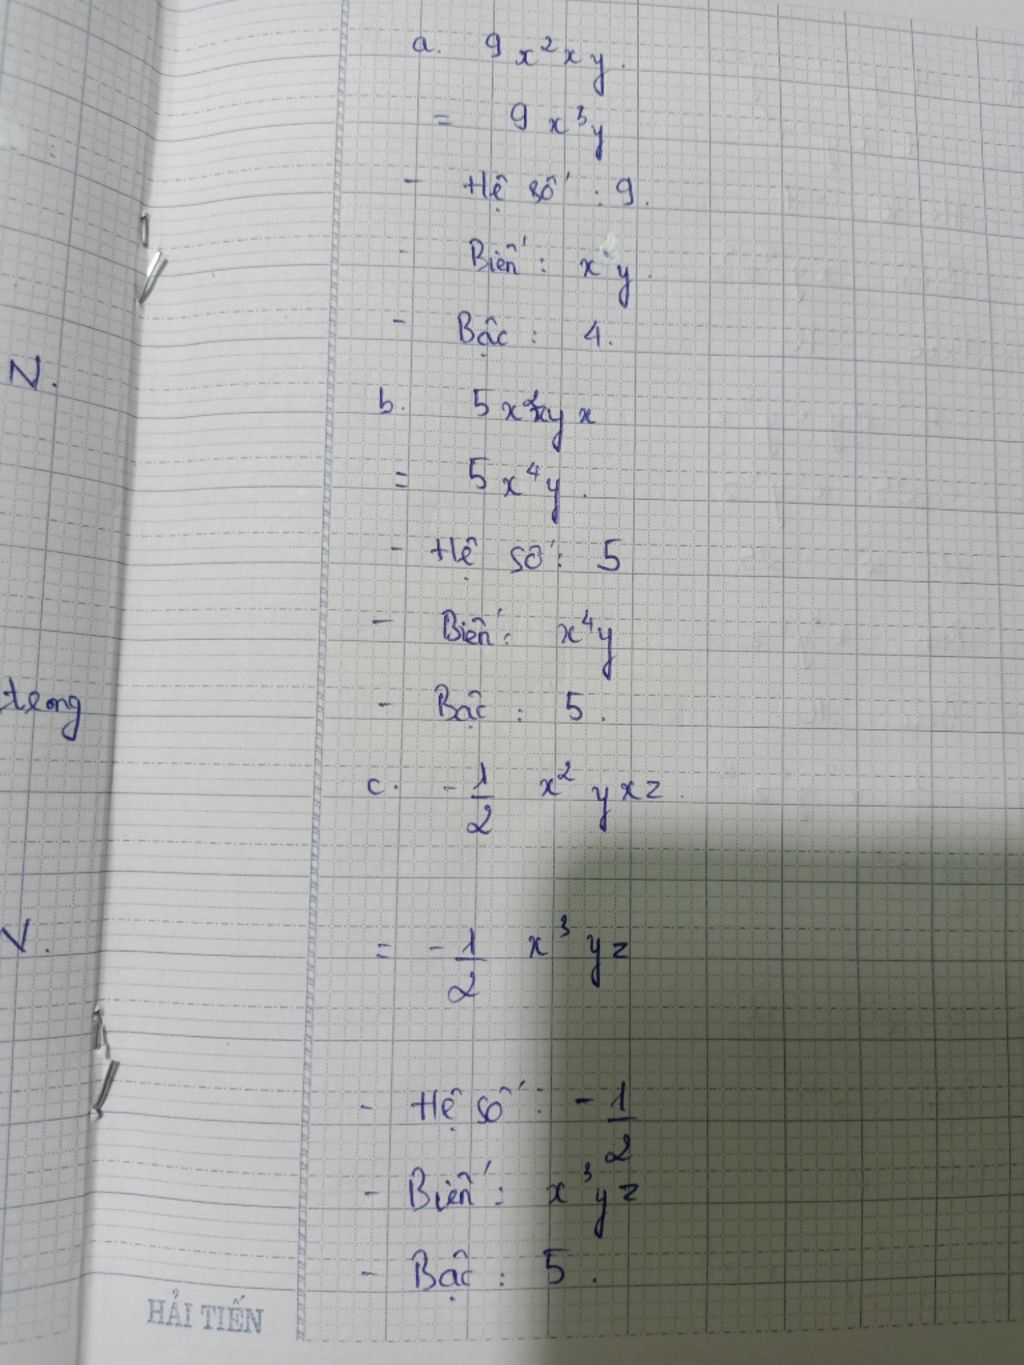 a. 9x²xy.
= 9x³y
- Hệ số : 9.
- Biến : x y.
- Bậc : 4.
N.
b. 5x²xyx
= 5x⁴y.
- Hệ số : 5
- Biến : x⁴y
trong
- Bậc : 5.
c. -1/2 x²yxz.
V.
= -1/2 x³yz
- Hệ số : -1/2
- Biến : x³yz
- Bậc : 5.
HẢI TIẾN